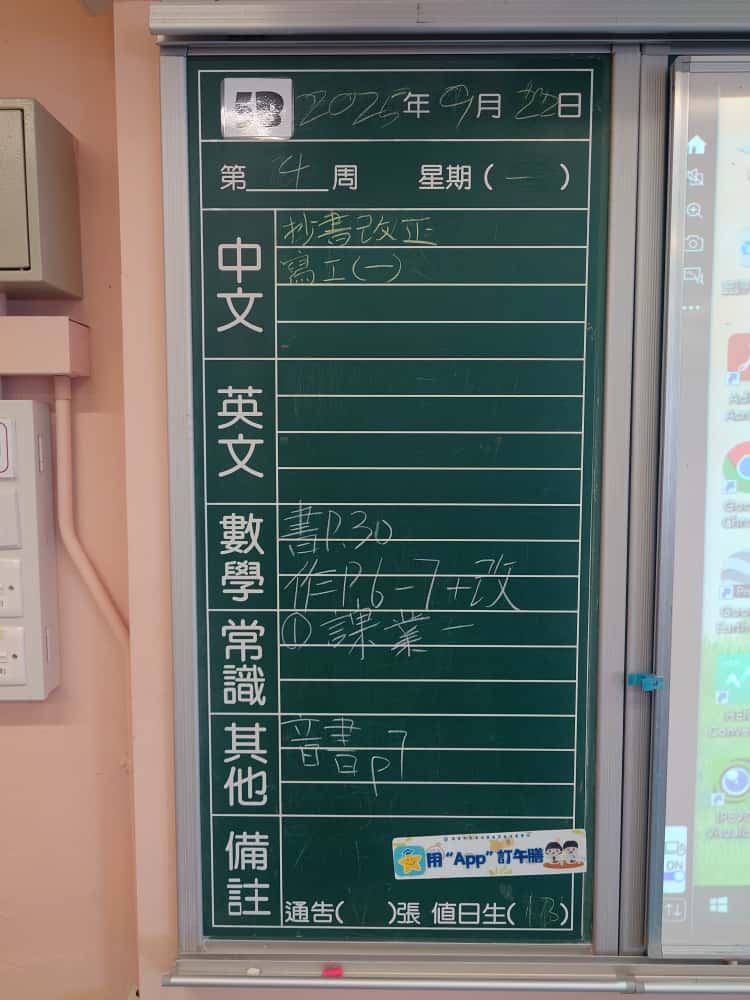 5B 2025年9月22日
第 4 周 星期(一)
中文
抄書改正
寫工(一)
英文
數學
書P.30
作P.6-7+改
常識
① 課業一
其他
音書p7
備註
用“App”訂午膳
通告( )張 值日生( )
ON